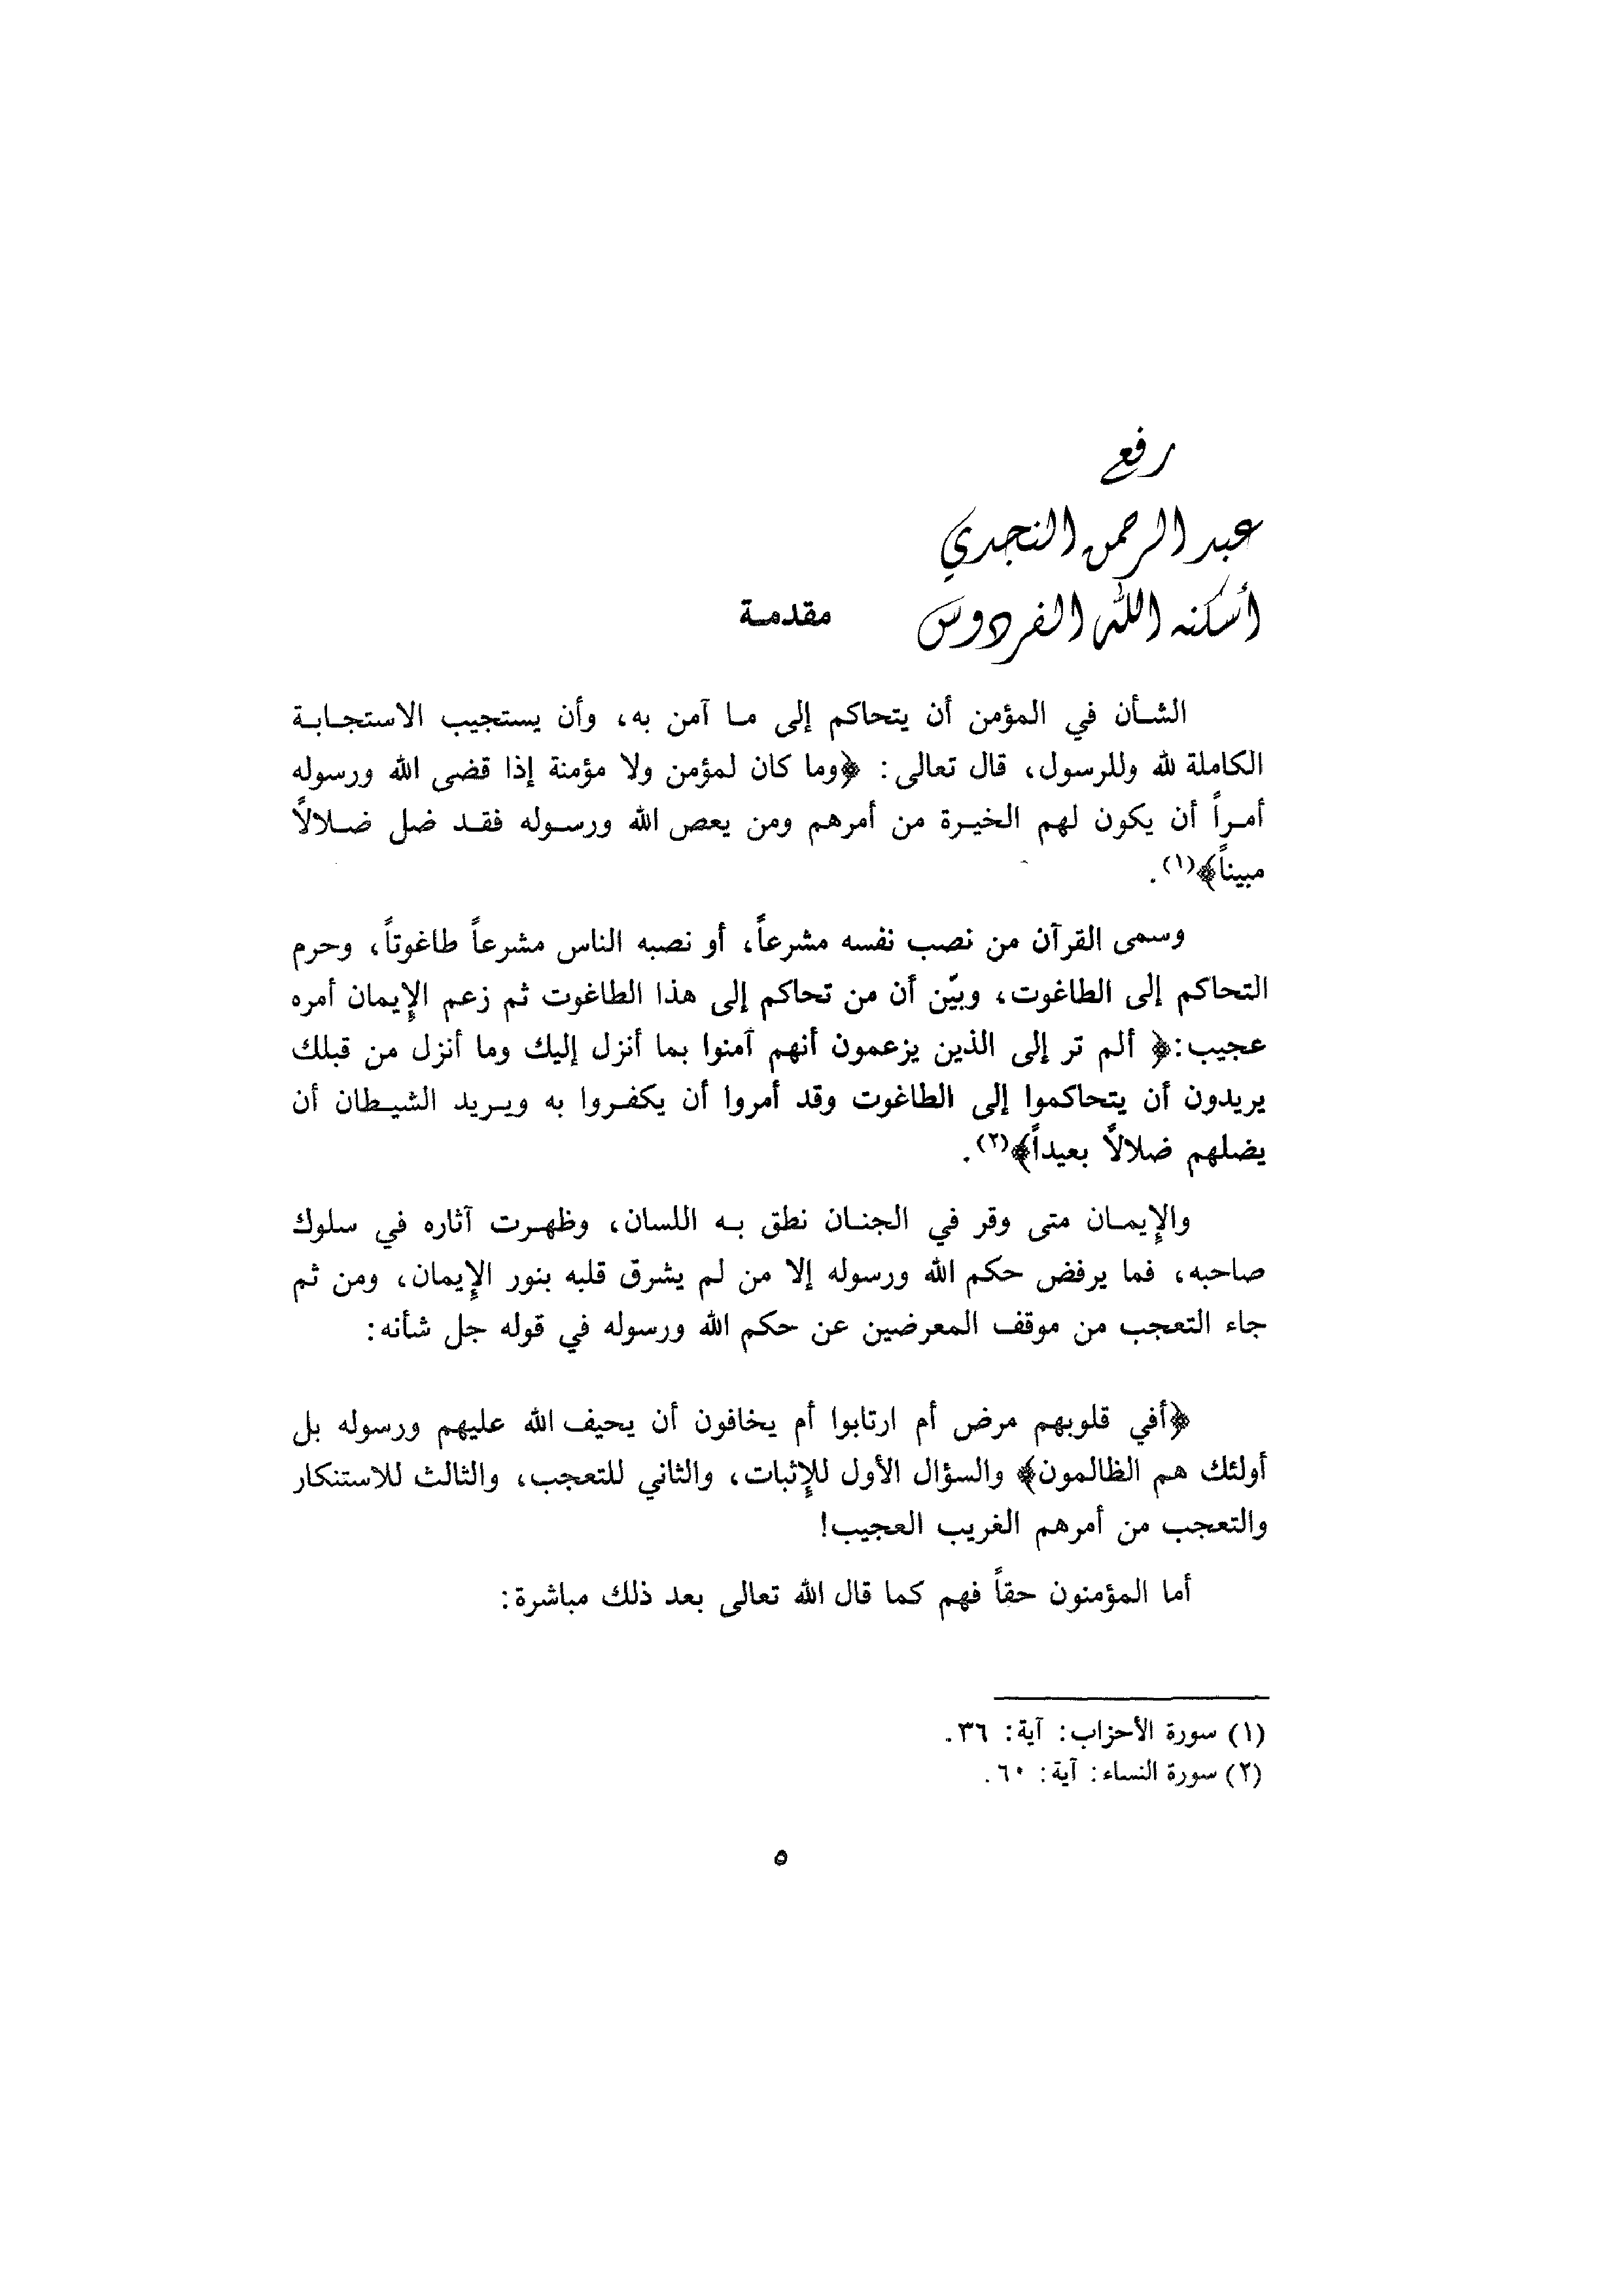 رفع
عبد الرحمن النجدي
أسكنه الله الفردوس
مقدمة
الشأن في المؤمن أن يتحاكم إلى ما آمن به، وأن يستجيب الاستجابة
الكاملة لله وللرسول، قال تعالى: ﴿وما كان لمؤمن ولا مؤمنة إذا قضى الله ورسوله
أمراً أن يكون لهم الخيرة من أمرهم ومن يعص الله ورسوله فقد ضل ضلالاً
مبيناً﴾(١).
وسمى القرآن من نصب نفسه مشرعاً، أو نصبه الناس مشرعاً طاغوتاً، وحرم
التحاكم إلى الطاغوت، وبيّن أن من تحاكم إلى هذا الطاغوت ثم زعم الإيمان أمره
عجيب:﴿ ألم تر إلى الذين يزعمون أنهم آمنوا بما أنزل إليك وما أنزل من قبلك
يريدون أن يتحاكموا إلى الطاغوت وقد أمروا أن يكفروا به ويريد الشيطان أن
يضلهم ضلالاً بعيداً﴾(٢).
والإيمان متى وقر في الجنان نطق به اللسان، وظهرت آثاره في سلوك
صاحبه، فما يرفض حكم الله ورسوله إلا من لم يشرق قلبه بنور الإيمان، ومن ثم
جاء التعجب من موقف المعرضين عن حكم الله ورسوله في قوله جل شأنه:
﴿أفي قلوبهم مرض أم ارتابوا أم يخافون أن يحيف الله عليهم ورسوله بل
أولئك هم الظالمون﴾ والسؤال الأول للإثبات، والثاني للتعجب، والثالث للاستنكار
والتعجب من أمرهم الغريب العجيب!
أما المؤمنون حقاً فهم كما قال الله تعالى بعد ذلك مباشرة:
(١) سورة الأحزاب: آية: ٣٦.
(٢) سورة النساء: آية: ٦٠.
٥